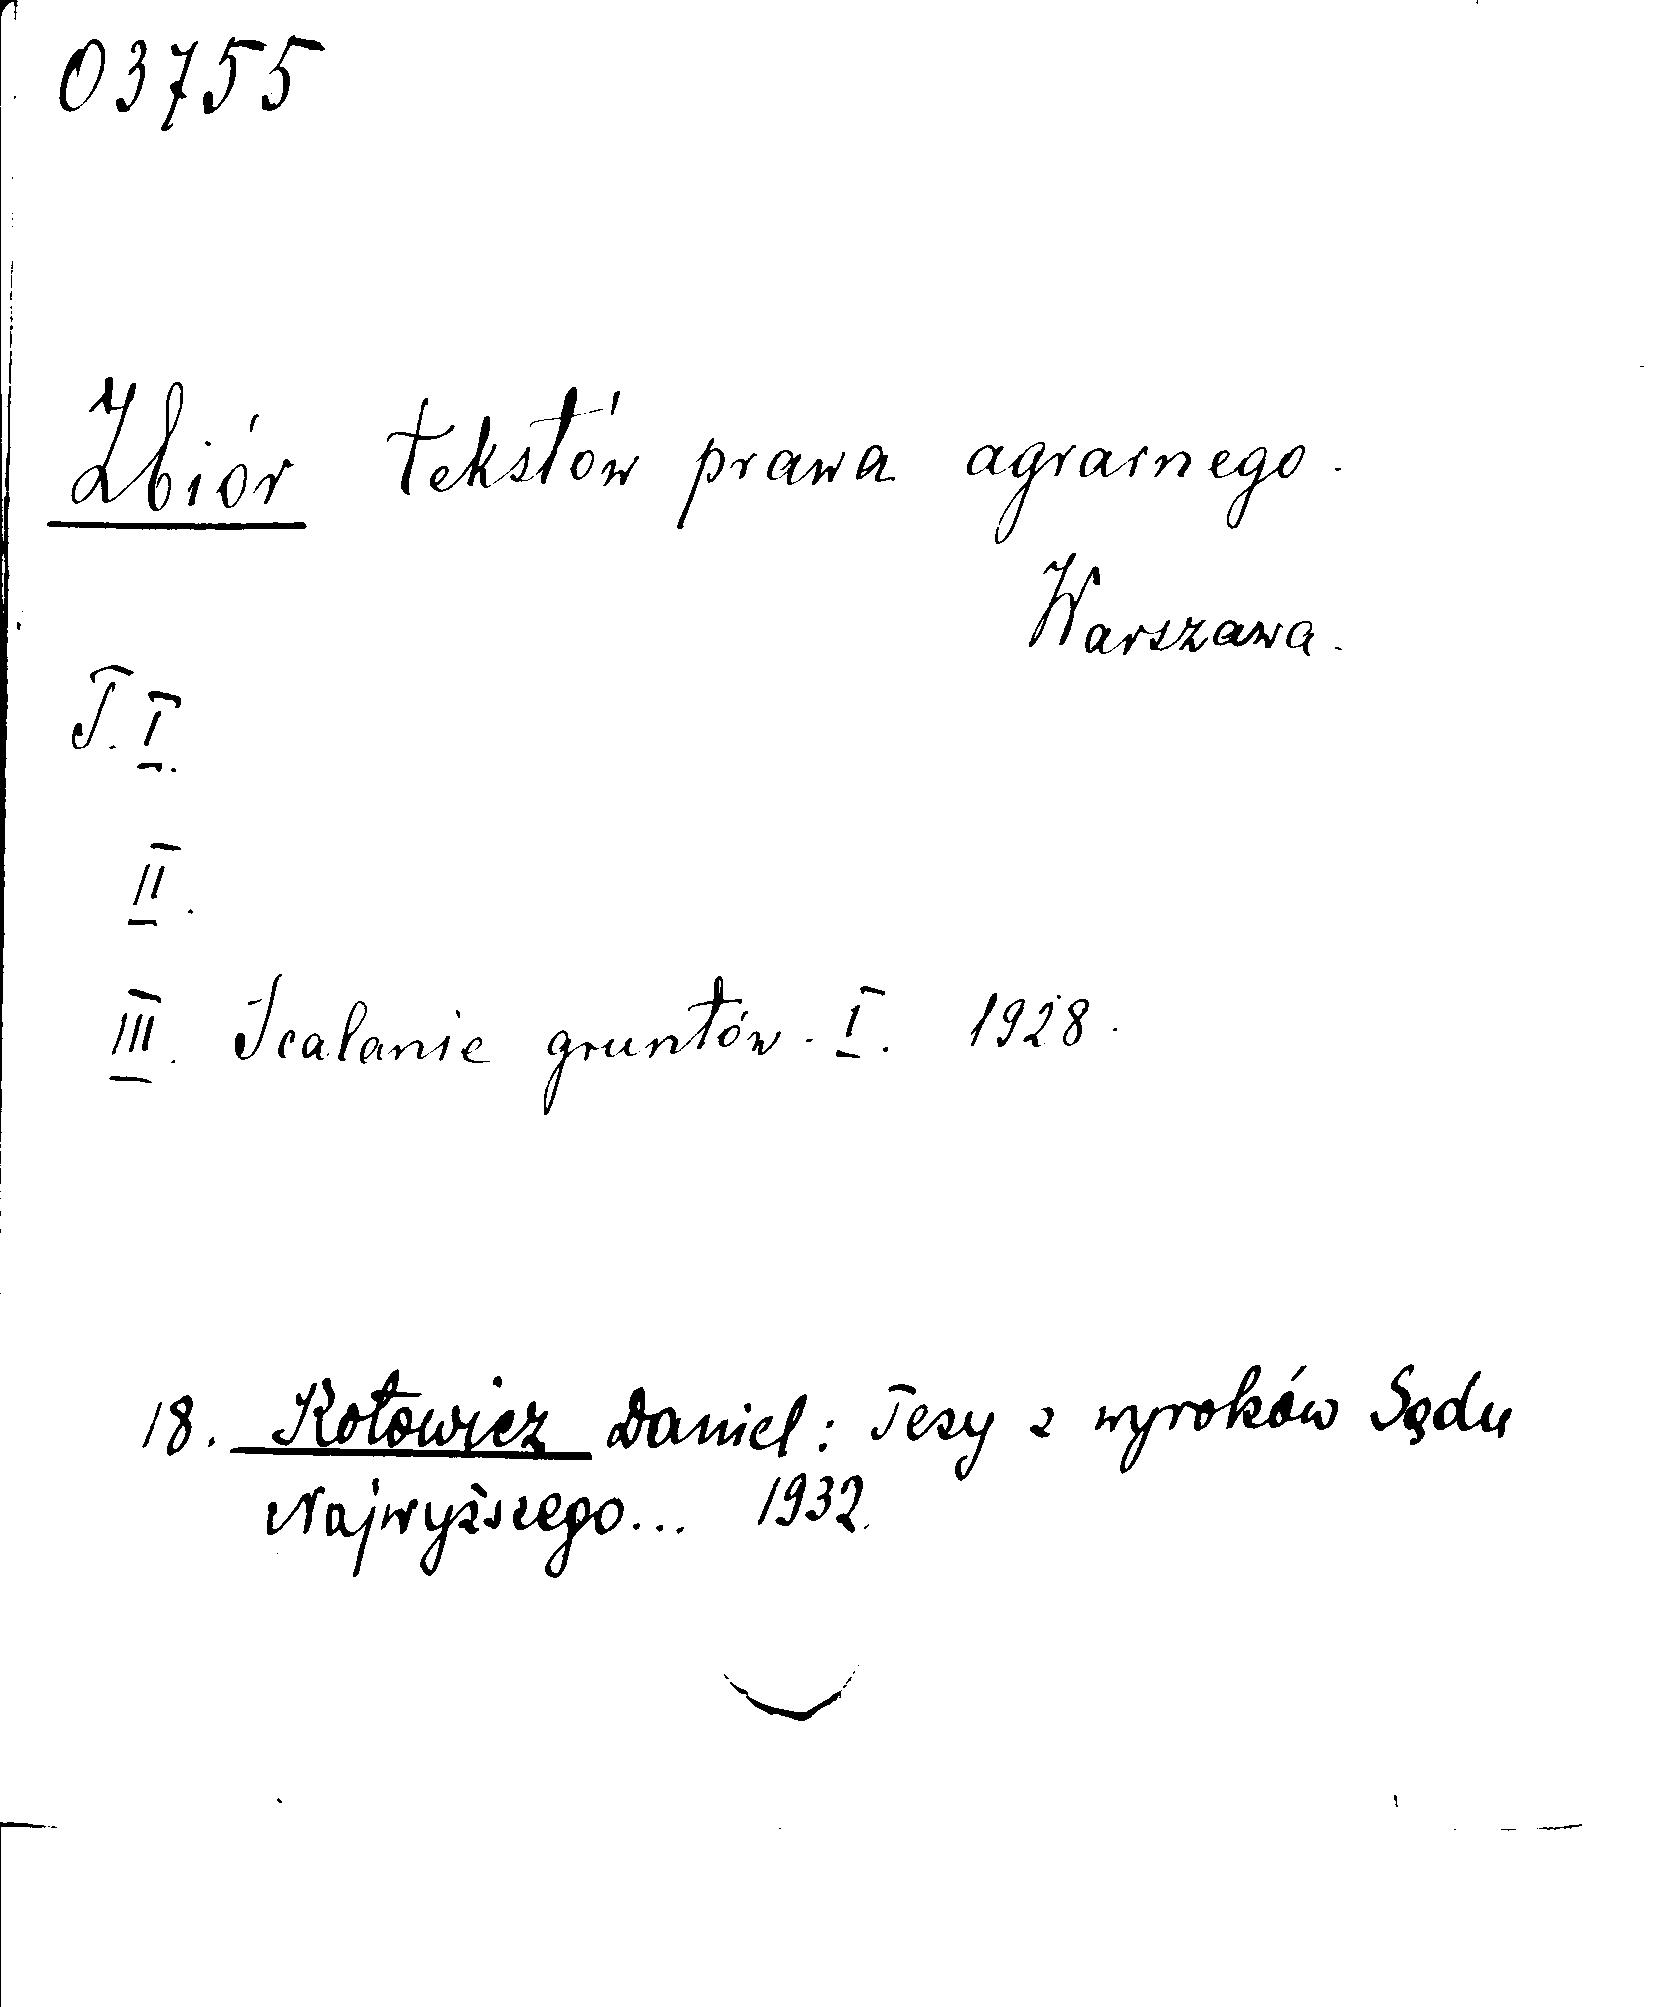 03755
Zbiór tekstów prawa agrarnego.
Warszawa.
T. I.
II.
III. Scalanie gruntów. I. 1928.
18. Kotowicz Daniel: Tezy z wyroków Sądu
Najwyższego... 1932.